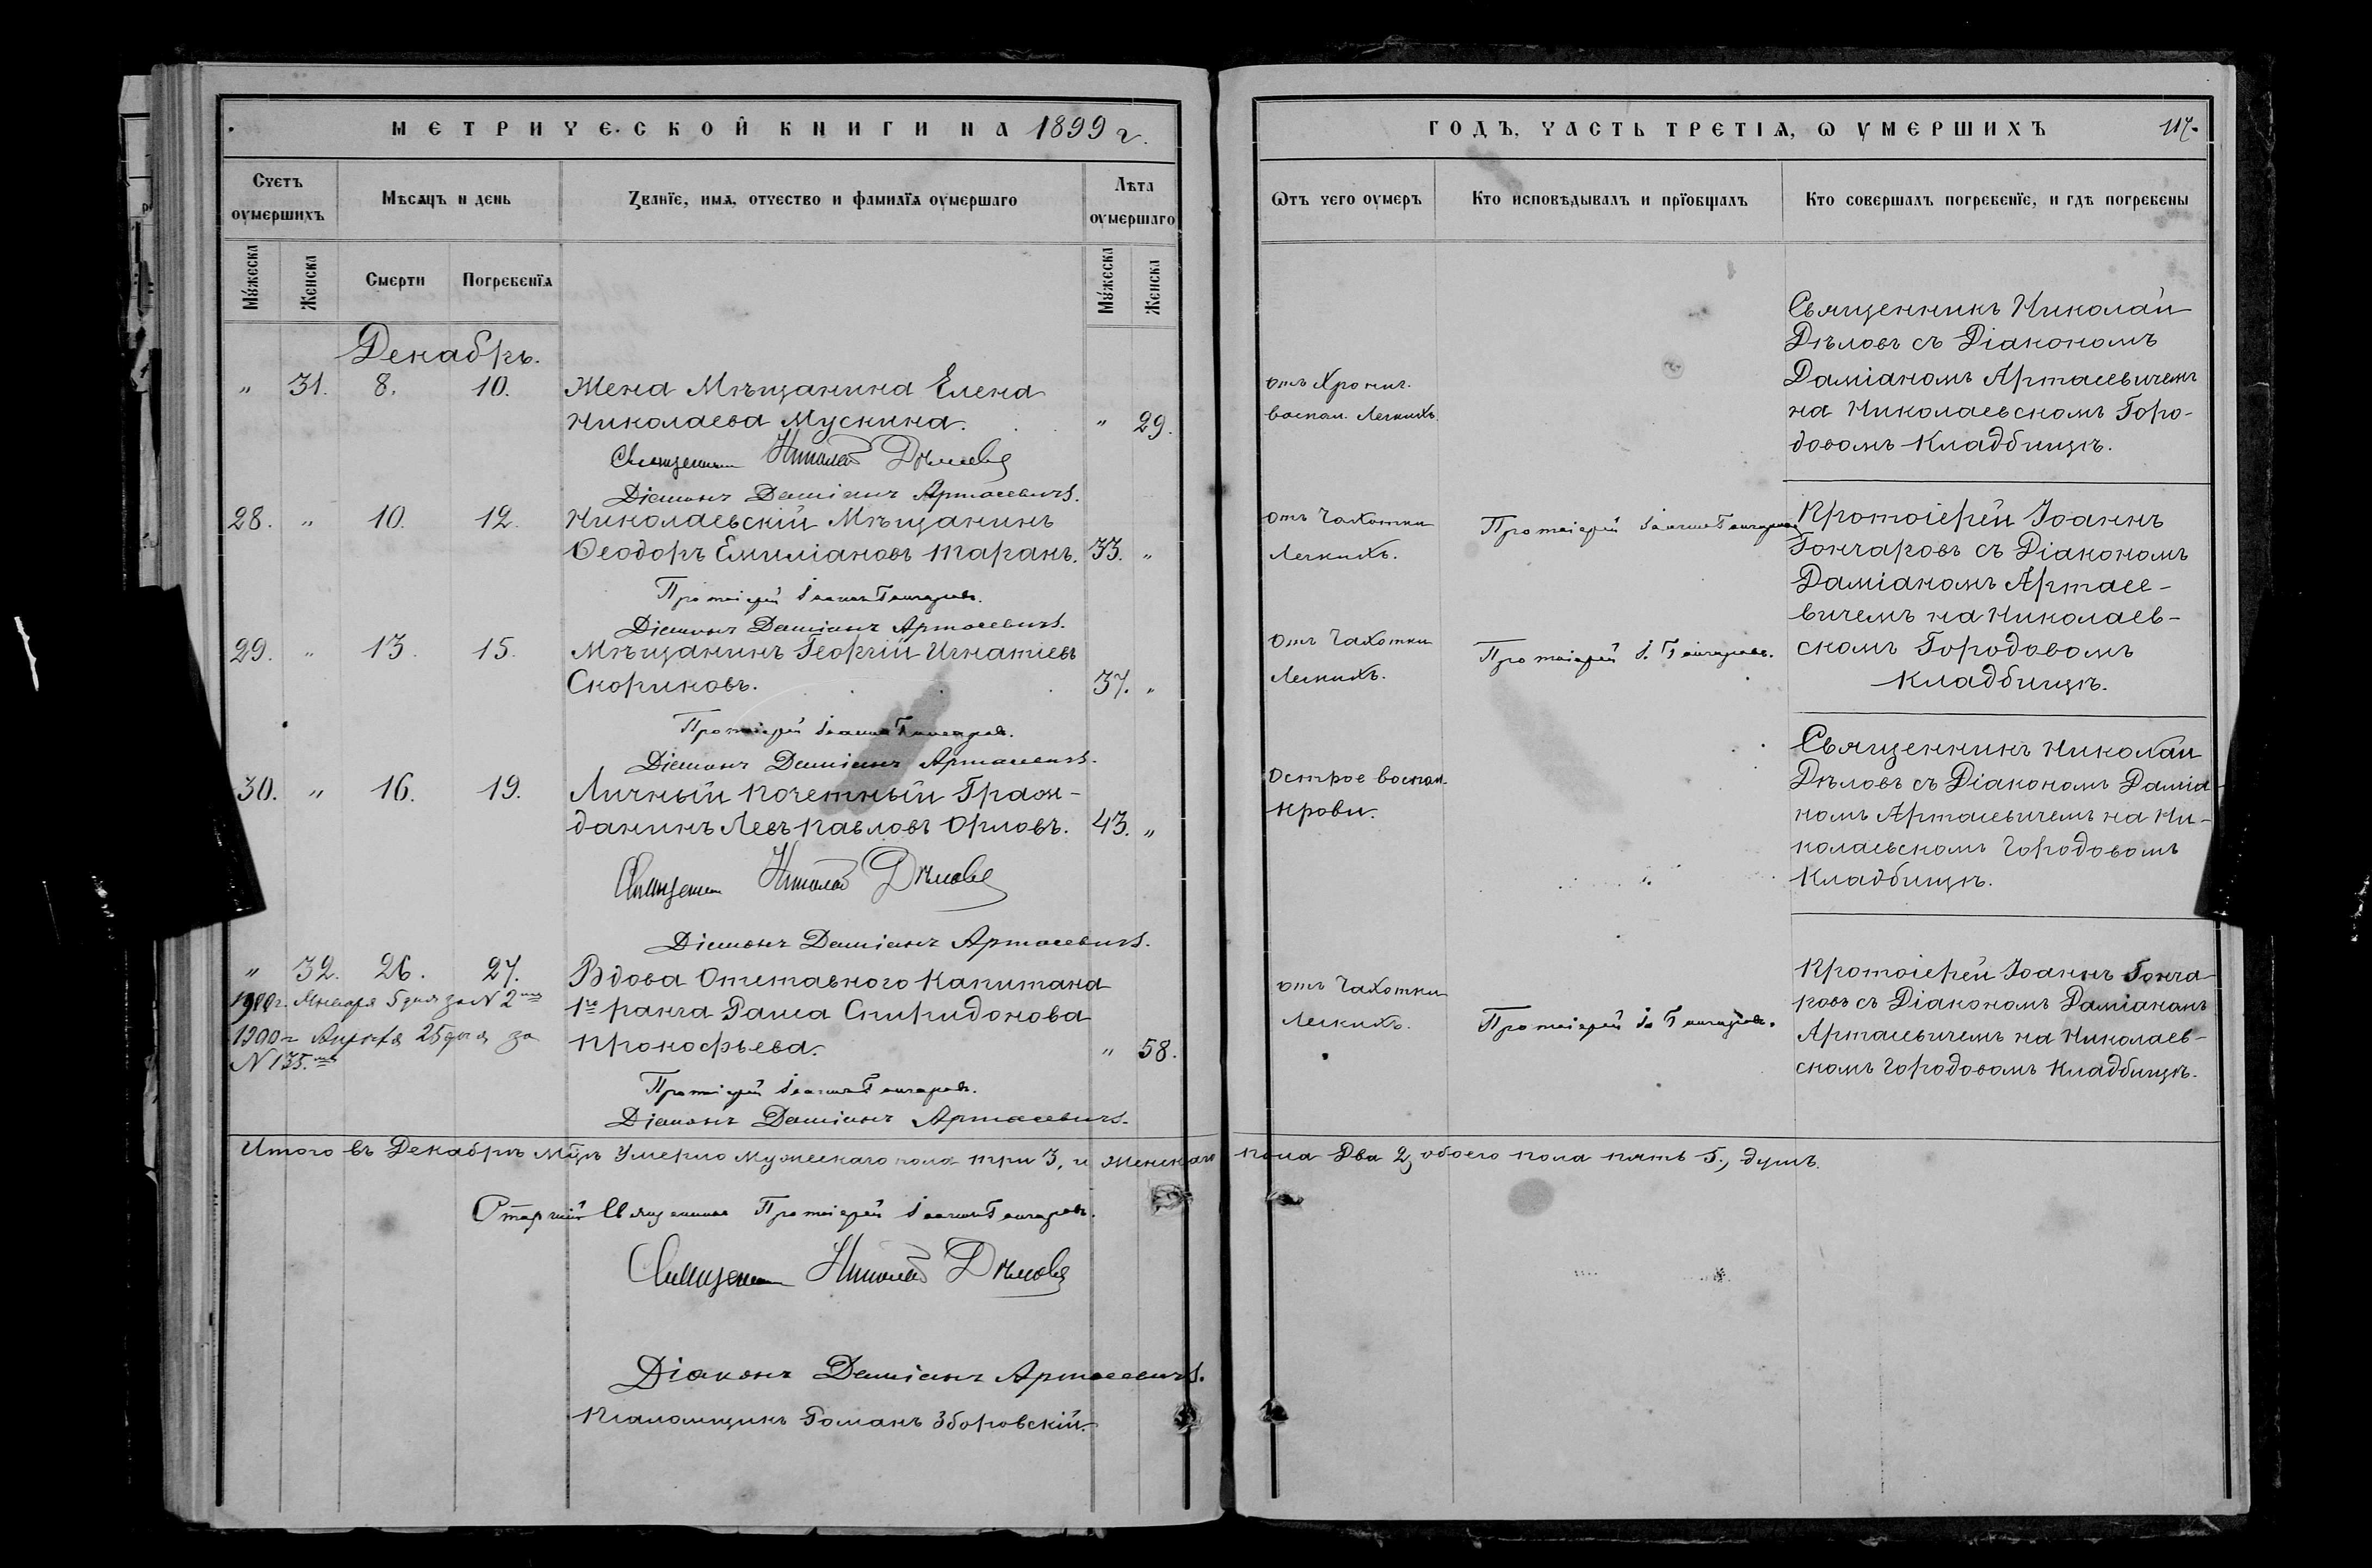 МЕТРИЧЕСКОЙ КНИГИ НА 1899 г.
Счетъ оумершихъ
Мѣсяцъ и день
Званїе, имя, отчество и фамилїя оумершаго
Лѣта оумершаго
Мужеска
Женска
Смерти
Погребенїя
Мужеска
Женска
Декабрь.
" 31. 8. 10. Жена Мѣщанина Елена
Николаева Мускина. " 29.
Священникъ Николай Дѣловъ
Діаконъ Даміанъ Артасевичъ.
28. " 10. 12. Николаевскій Мѣщанинъ
Ѳеодоръ Емиліановъ Таранъ. 33. "
Протоіерей Іоаннъ Гончаровъ.
Діаконъ Даміанъ Артасевичъ.
29. " 13. 15. Мѣщанинъ Георгій Игнатіевъ
Скориковъ. 37. "
Протоіерей Іоаннъ Гончаровъ.
Діаконъ Даміанъ Артасевичъ.
30. " 16. 19. Личный Почетный Граж-
данинъ Левъ Павловъ Орловъ. 43. "
Священникъ Николай Дѣловъ
Діаконъ Даміанъ Артасевичъ.
" 32. 26. 27. Вдова Отставного Капитана
1900 г. Января 5 дня за N 2
1го ранга Раиса Спиридонова
1900 г Апрѣля 25 дня за
N 135.
Прокофьева. " 58.
Протоіерей Іоаннъ Гончаровъ.
Діаконъ Даміанъ Артасевичъ.
Итого въ Декабрѣ мцѣ Умерло мужескаго пола три 3, и женскаго пола Два 2, обоего пола пять 5, душъ.
Старшій Священникъ Протоіерей Іоаннъ Гончаровъ.
Священникъ Николай Дѣловъ
Діаконъ Даміанъ Артасевичъ.
Псаломщикъ Романъ Зборовскій.
ГОДЪ, ЧАСТЬ ТРЕТІЯ, Ѡ УМЕРШИХЪ
117.
Ѿтъ чего оумеръ
Кто исповѣдывалъ и прїобщалъ
Кто совершалъ погребенїе, и гдѣ погребены
Священникъ Николай
Дѣловъ съ Діакономъ
отъ Хронич. Даміаномъ Артасевичемъ
воспал. Легкихъ. на Николаевскомъ Горо-
довомъ Кладбищѣ.
отъ Чахотки Протоіерей Іоаннъ Гончаровъ Протоіерей Іоаннъ
Легкихъ. Гончаровъ съ Діакономъ
Даміаномъ Артасе-
вичемъ на Николаев-
отъ Чахотки Протоіерей І. Гончаровъ. скомъ Городовомъ
Легкихъ. Кладбищѣ.
Священникъ Николай
Острое воспал. Дѣловъ съ Діакономъ Даміа-
крови. номъ Артасевичемъ на Ни-
колаевскомъ Городовомъ
Кладбищѣ.
Протоіерей Іоаннъ Гонча-
отъ Чахотки ровъ съ Діакономъ Даміаномъ
Легкихъ. Протоіерей Іо Гончаровъ. Артасевичемъ на Николаев-
скомъ Городовомъ Кладбищѣ.